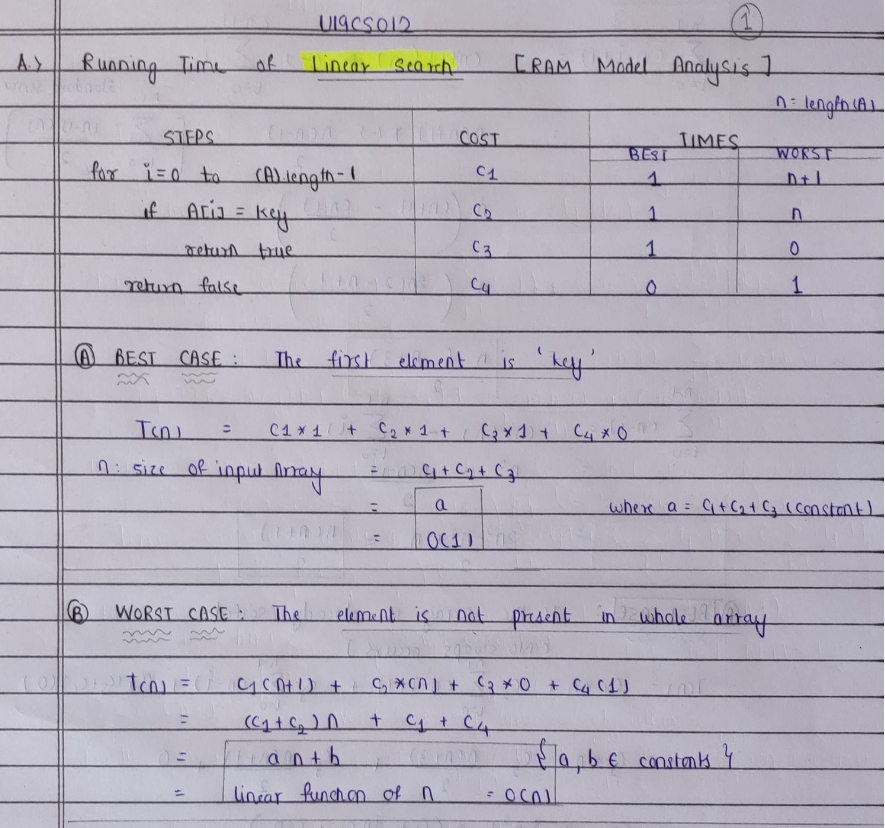 U19CS012 1
A.> Running Time of Linear Search [RAM Model Analysis]
n = length(A)
STEPS COST TIMES
BEST WORST
for i=0 to (A).length-1 C1 1 n+1
if A[i] = key C2 1 n
return true C3 1 0
return false C4 0 1
(A) BEST CASE : The first element is 'key'
T(n) = C1*1 + C2*1 + C3*1 + C4*0
n: size of input Array = C1+C2+C3
= a where a = C1+C2+C3 (constant)
= O(1)
(B) WORST CASE : The element is not present in whole array
T(n) = C1(n+1) + C2*(n) + C3*0 + C4(1)
= (C1+C2)n + C1 + C4
= an+b {a, b ∈ constants}
= linear function of n = O(n)